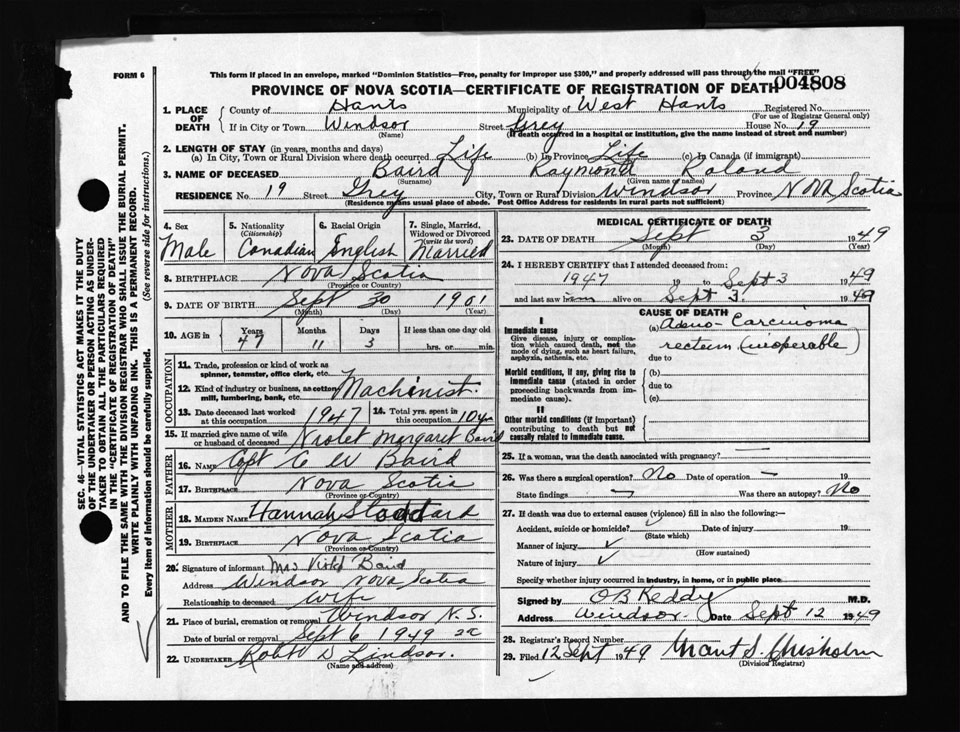 FORM 6
This form if placed in an envelope, marked "Dominion Statistics—Free, penalty for improper use $300," and properly addressed will pass through the mail "FREE"
PROVINCE OF NOVA SCOTIA—CERTIFICATE OF REGISTRATION OF DEATH 004808
1. PLACE OF DEATH
County of Hants Municipality of West Hants Registered No.
(For use of Registrar General only)
If in City or Town Windsor Street Grey House No. 19
(Name) (If death occurred in a hospital or institution, give the name instead of street and number)
2. LENGTH OF STAY (in years, months and days)
(a) In City, Town or Rural Division where death occurred Life (b) In Province Life (c) In Canada (if immigrant)
3. NAME OF DECEASED Baird Raymond Roland
(Surname) (Given name or names)
RESIDENCE No. 19 Street Grey City, Town or Rural Division Windsor Province Nova Scotia
(Residence means usual place of abode. Post Office Address for residents in rural parts not sufficient)
4. Sex Male
5. Nationality (Citizenship) Canadian
6. Racial Origin English
7. Single, Married, Widowed or Divorced (write the word) Married
8. BIRTHPLACE Nova Scotia
(Province or Country)
9. DATE OF BIRTH Sept 30 1901
(Month) (Day) (Year)
10. AGE in Years 47 Months 11 Days 3 If less than one day old hrs. or min.
OCCUPATION
11. Trade, profession or kind of work as spinner, teamster, office clerk, etc.
12. Kind of industry or business, as cotton mill, lumbering, bank, etc. Machinist
13. Date deceased last worked at this occupation 1947 14. Total yrs. spent in this occupation 10 yrs
15. If married give name of wife or husband of deceased Violet Margaret Baird
FATHER
16. NAME Capt C W Baird
17. BIRTHPLACE Nova Scotia
(Province or Country)
MOTHER
18. MAIDEN NAME Hannah Stoddard
19. BIRTHPLACE Nova Scotia
(Province or Country)
20. Signature of informant Mrs Violet Baird
Address Windsor Nova Scotia
Relationship to deceased Wife
21. Place of burial, cremation or removal Windsor N.S.
Date of burial or removal Sept 6 1949
22. UNDERTAKER Robt D Lindsor.
(Name and address)
MEDICAL CERTIFICATE OF DEATH
23. DATE OF DEATH Sept 3 1949
(Month) (Day) (Year)
24. I HEREBY CERTIFY that I attended deceased from:
1947 19 to Sept 3 1949
and last saw him alive on Sept 3. 1949
CAUSE OF DEATH
I
Immediate cause
Give disease, injury or complication which caused death, not the mode of dying, such as heart failure, asphyxia, asthenia, etc.
(a) Adeno-Carcinoma
rectum (inoperable)
due to
Morbid conditions, if any, giving rise to immediate cause (stated in order proceeding backwards from immediate cause).
(b)
due to
(c)
II
Other morbid conditions (if important) contributing to death but not causally related to immediate cause.
25. If a woman, was the death associated with pregnancy? —
26. Was there a surgical operation? No Date of operation — 19
State findings — Was there an autopsy? No
27. If death was due to external causes (violence) fill in also the following:—
Accident, suicide or homicide? Date of injury 19
(State which)
Manner of injury
(How sustained)
Nature of injury
Specify whether injury occurred in industry, in home, or in public place
Signed by O B Keddy M.D.
Address Windsor Date Sept 12 1949
28. Registrar's Record Number
29. Filed 12 Sept 1949 Grant S. Chisholm
(Division Registrar)
SEC. 46—VITAL STATISTICS ACT MAKES IT THE DUTY
OF THE UNDERTAKER OR PERSON ACTING AS UNDER-
TAKER TO OBTAIN ALL THE PARTICULARS REQUIRED
IN THE "CERTIFICATE OF REGISTRATION OF DEATH"
AND TO FILE THE SAME WITH THE DIVISION REGISTRAR WHO SHALL ISSUE THE BURIAL PERMIT.
WRITE PLAINLY WITH UNFADING INK. THIS IS A PERMANENT RECORD.
Every item of information should be carefully supplied. (See reverse side for instructions.)